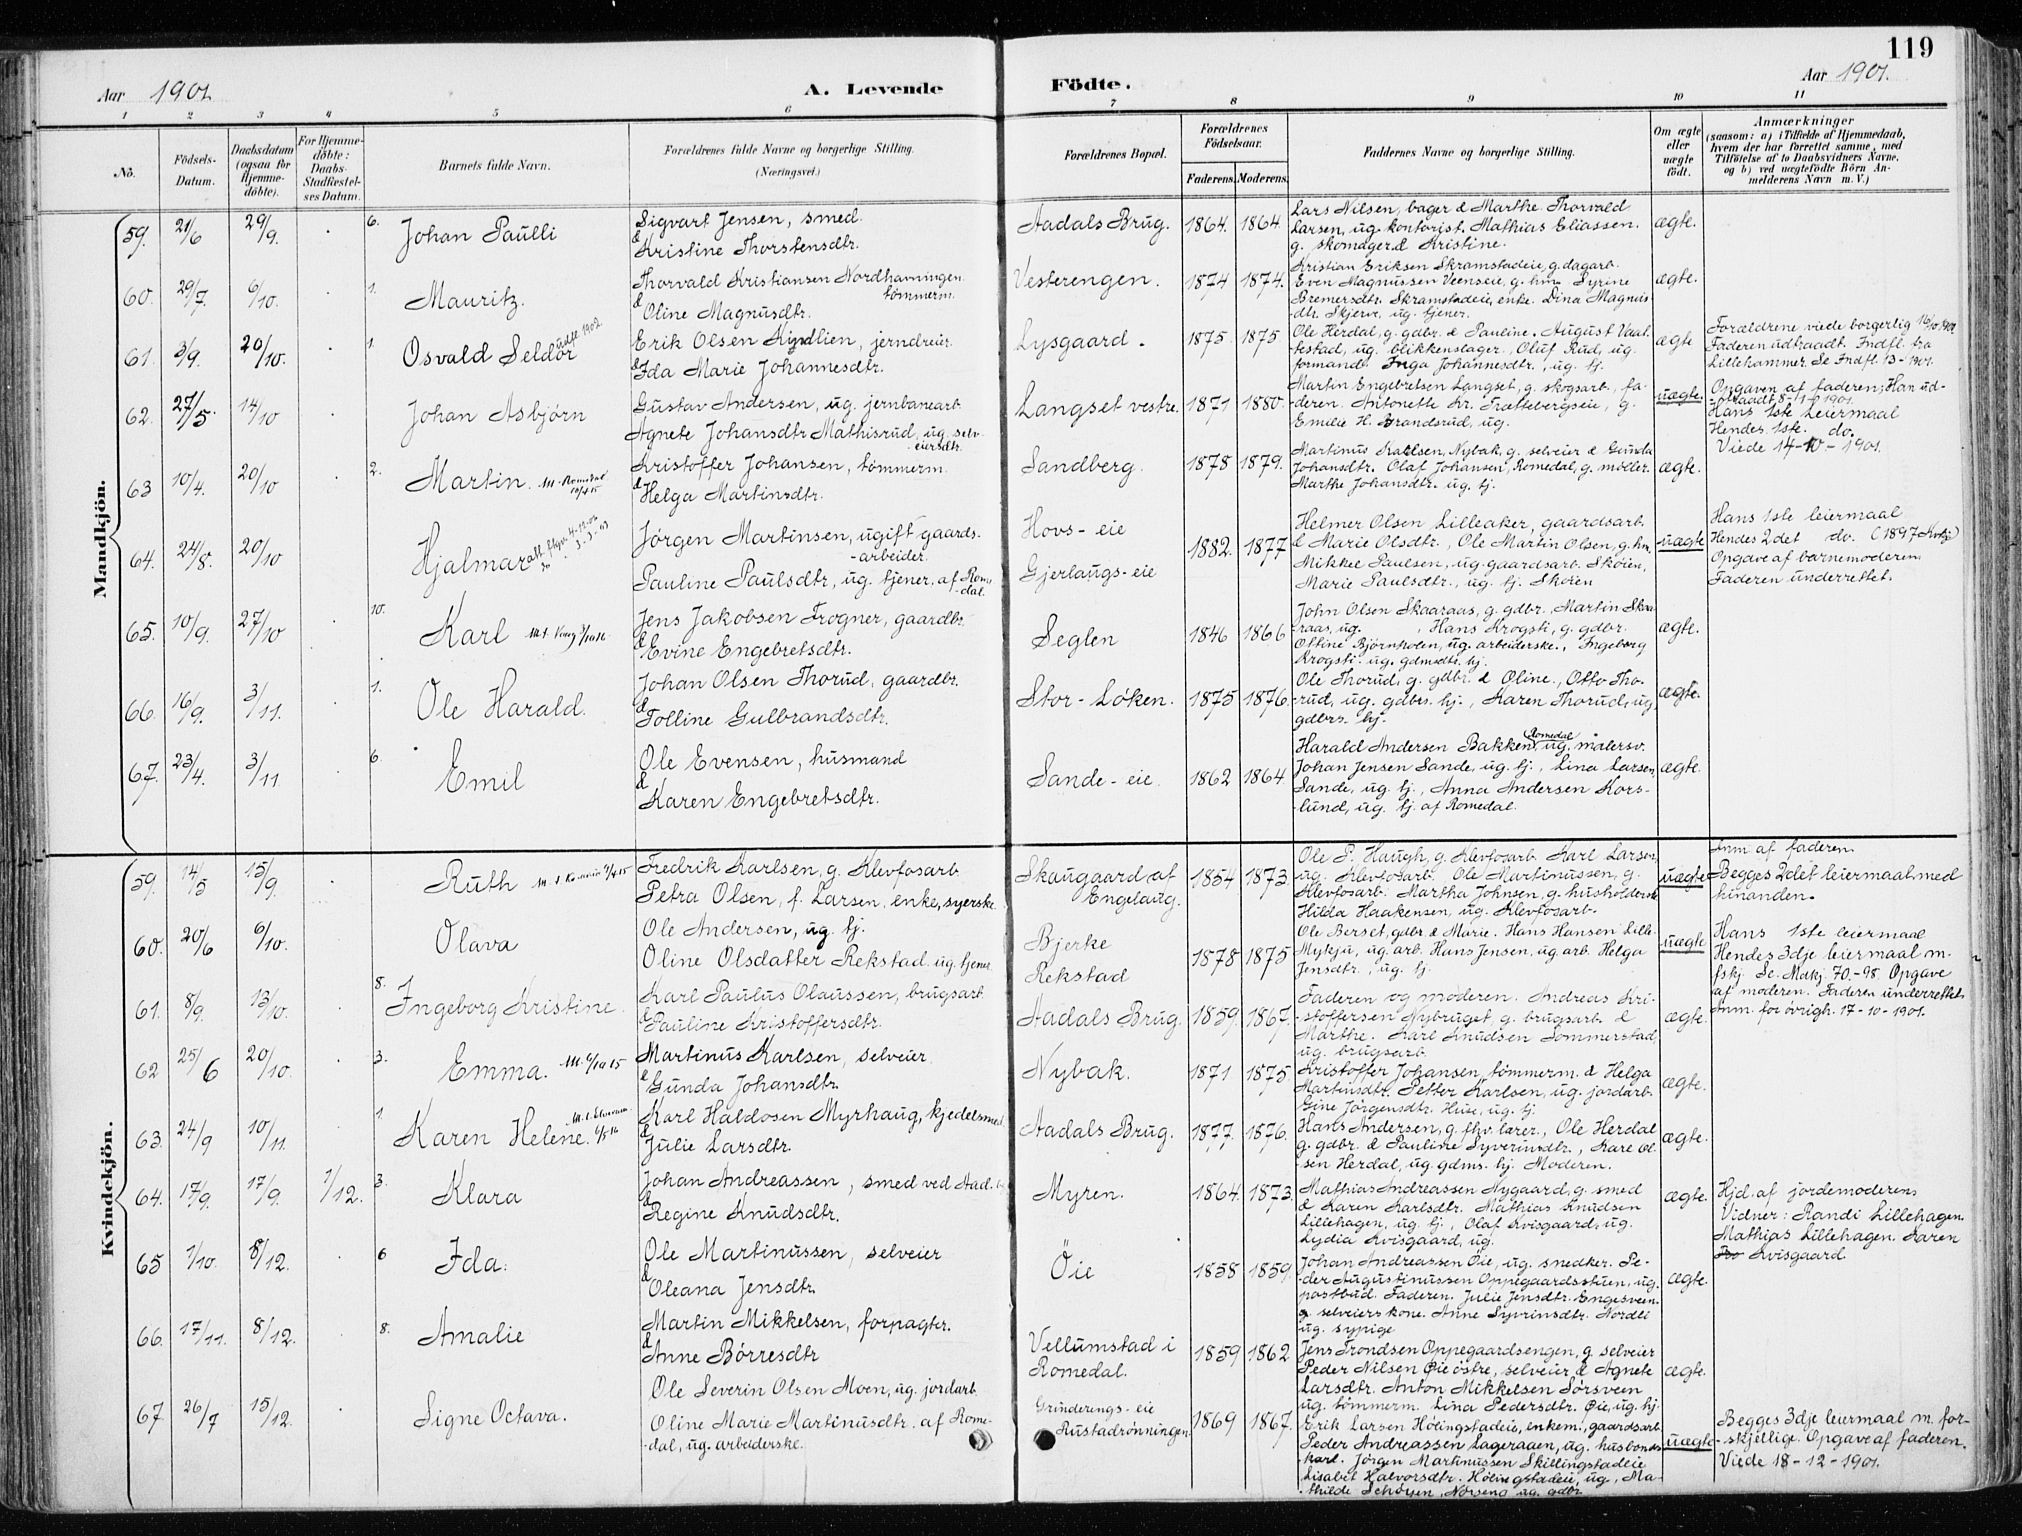 119
Aar 1901. A. Levende Födte. Aar 1901.
1 2 3 4 5 6 7 8 9 10 11
No. Födsels-Datum. Daabsdatum (ogsaa for Hjemmedöbte). For Hjemmedöbte: Daabs-Stadfæstelses Datum. Barnets fulde Navn. Forældrenes fulde Navne og borgerlige Stilling. (Næringsvei.) Forældrenes Bopæl. Forældrenes Födselsaar. Faderens. Moderens. Faddernes Navne og borgerlige Stilling. Om ægte eller uægte födt. Anmærkninger
(saasom: a) i Tilfælde af Hjemmedaab, hvem der har forrettet samme, med Tilföielse af to Daabsvidners Navne, og b) ved uægtefödte Börn Anmelderens Navn m. V.)
Mandkjön.
59. 21/6 29/9. 6. Johan Paulli
Sigvart Jensen, smed
& Kristine Thorstensdtr.
Aadals Brug. 1864. 1864
Lars Nilsen, bager & Marthe. Thorvald
Larsen, ug. kontorist. Mathias Eliassen.
g. skomager & Kristine.
ægte.
60. 29/7. 6/10. 1. Mauritz.
Thorvald Kristiansen Nordhavningen
tømmerm.
& Oline Magnusdtr.
Vesterengen. 1874 1874.
Kristian Eriksen Skramstadeie, g. dagarb.
Even Magnussen Veenseie, g. hm. Syrine
Bremersdtr. Skramstadeie, enke. Dina Magnus-
dtr. Skjerve, ug. tjener.
ægte.
61. 3/9. 20/10. 1. Osvald Seldor udfl. 1902
Erik Olsen Kindlien, jerndreier
& Ida Marie Johannesdtr.
Lysgaard. 1875 1875
Ole Herdal, g. gdbr. & Pauline. August Vaal-
bestad, ug. blikkenslager, Oluf Rud, ug.
formand. Inga Johannesdtr., ug. tj.
ægte
Forældrene viede borgerlig 16/10 1901
Faderen udtraadt. Indfl. fra
Lillehammer. Se Indfl. 13-1901.
62. 27/5. 14/10 Johan Asbjørn
Gustav Andersen, ug. jernbanearb.
Agnete Johansdtr Mathisrud, ug. selv-
eiersdtr.
Langset vestre. 1871 1880.
Martin Engebretsen Langset, g. skogsarb., fa-
deren. Antonette Kr. Trættebergseie, g.
Emilie H. Brandsrud, ug.
uægte.
Opgaven af faderen; Han ud-
traadt 8-1-1901.
Hans 1ste Leiermaal
Hendes 1ste do.
Viede 14-10-1901.
63 10/4. 20/10 2. Martin.
Kristoffer Johansen, tømmerm.
& Helga Martinsdtr.
Sandberg. 1878 1879.
Martinus Karlsen, Nybak, g. selveier & Gunda
Johansdtr. Olaf Johansen, Romedal, g. møller.
Marthe Johansdtr. ug. tj.
ægte.
64. 24/8. 20/10 Hjalmar
Jørgen Martinsen, ugift gaards-
-arbeider.
Pauline Paulsdtr, ug. tjener, af Rome-
-dal.
Hovs-eie
Gjerlaugs-eie
1882. 1877
Helmer Olsen Lilleaker, gaardsarb.
& Marie Olsdtr., Ole Martin Olsen, g. hm,
Mikkel Paulsen, ug. gaardsarb. Skøien,
Marie Paulsdtr., ug. tj. Skøien
uægte
Hans 1ste leiermaal
Hendes 2det do.
Opgave af barnemoderen
Faderen underrettet.
65. 10/9. 27/10 10. Karl
Jens Jakobsen Frogner, gaardbr.
& Evine Engebretsdtr.
Seglen 1846 1866
John Olsen Skaaraas, g. gdbr., Martin Skaa-
raas, ug. , Hans Krogsti, g. gdbr.
Ottine Bjørnholen, ug. arbeiderske., Ingeborg
Krogsti ug. gdmsdtr. tj.
ægte.
66. 16/9. 3/11. 1. Ole Harald.
Johan Olsen Thorud, gaardbr.
& Tolline Gulbrandsdtr.
Stor-Løken. 1875 1876.
Ole Thorud, g. gdbr. & Oline., Otto Tho-
rud, ug. gdbrs. tj., Karen Thorud, ug.
gdbrs. tj.
ægte.
67. 23/4. 3/11. 6. Emil
Ole Evensen, husmand
& Karen Engebretsdtr.
Sande-eie. 1862 1864
Harald Andersen Bakken, Romedal ug. malersv.
Johan Jensen Sande, ug. tj., Lina Larsen
Sande, ug. tj., Anna Andersen Kors-
lund, ug. tj. af Romedal.
ægte.
Kvindekjön.
59. 14/5 15/9. Ruth
Fredrik Karlsen, g. Klevfosarb.
Petra Olsen, f. Larsen, enke, syerske
Skaugaard af
Engelaug.
1854 1873
Ole P. Haugh, g. Klevfosarb. Karl Larsen,
ug. Klevfosarb. Ole Martinussen, g.
Klevfosarb. Martha Johnsen, g. husholderske
Hilda Haakensen, ug. Klevfosarb.
uægte
Anm. af faderen.
Begges 2det leiermaal med
hinanden.
60. 20/6 6/10. Olava
Ole Andersen, ug. tj.
Oline Olsdatter Rekstad ug. tjener
Bjerke
Rekstad
1878 1875
Ole Berset, gdbr. & Marie. Hans Hansen Lille-
Mykju, ug. arb. Hans Jensen, ug. arb. Helga
Jensdtr., ug. tj.
uægte
Hans 1ste leiermaal
Hendes 3dje leiermaal m.
fskj. Se Mnkj. 70-98. Opgave
af moderen. Faderen underrettet
Anm. for øvrigh. 17-10-1901.
61. 8/9. 13/10. 8. Ingeborg Kristine
Karl Paulus Olaussen, brugsarb.
& Pauline Kristoffersdtr.
Aadals Brug. 1859. 1867.
Faderen og moderen. Andreas Kri-
stoffersen Nybruget, g. brugsarb. &
Marthe. Karl Knudsen Sommerstad,
ug. brugsarb.
ægte.
62 25/6 20/10. 3. Emma.
Martinus Karlsen, selveier
& Gunda Johansdtr.
Nybak. 1871 1875
Kristoffer Johansen, tømmerm. & Helga
Martinsdtr. Petter Karlsen, ug. jordarb.
Gine Jørgensdtr. Huse, ug. tj.
ægte.
63. 24/9 10/11. 1 Karen Helene
Karl Haldosen Myrhaug, kjedelsmed
& Julie Larsdtr.
Aadals Brug. 1877. 1876.
Hans Andersen, g. fhv. lærer., Ole Herdal
g. gdbr. & Pauline Syverinsdtr., Kare Ol-
sen Herdal, ug. gdms. tj. Moderen.
ægte.
64. 17/9. 17/9. 1/12. 3. Klara
Johan Andreassen, smed ved Aad. b.
& Regine Knudsdtr.
Myren. 1864. 1873.
Mathias Andreassen Nygaard, g. smed
& Karen Karlsdtr. Mathias Knudsen
Lillehagen, ug. tj., Olaf Kvisgaard, ug.
Lydia Kvisgaard, ug.
ægte.
Hjd. af jordemoderen
Vidner: Randi Lillehagen.
Mathias Lillehagen. Karen
Kvisgaard
65 1/10. 8/12. 6 Ida.
Ole Martinussen, selveier
& Oleana Jensdtr.
Öie 1858 1859.
Johan Andreassen Øie, ug. snedker. Pe-
der Augustinussen Oppegaardsstuen, ug.
postbud. Faderen. Julie Jensdtr. Engesveen
g. selveiers kone. Anne Syvrinsdtr. Nordli
ug. sypige
ægte.
66. 17/11. 8/12. 8. Amalie
Martin Mikkelsen, forpagter.
& Anne Børresdtr
Vellumstad i
Romedal.
1859 1862
Jens Trondsen Oppegaardsengen, g. selveier
Peder Nilsen Øie østre, selveier & Agnete
Larsdtr. Anton Mikkelsen Sørsveen
ug. tømmerm. Lina Pedersdtr. Øie, ug. tj.
ægte.
67 26/7 15/12. Signe Octava.
Ole Severin Olsen Moen, ug. jordarb.
Oline Marie Martinusdtr. af Rome-
-dal, ug. arbeiderske.
Grinderengs-eie
Rustadrønningen
1869 1867.
Erik Larsen Hølingstadeie, enkem., gaardsarb.
Peder Andreassen Lageraaen, ug. husbonds-
karl. Jørgen Martinussen Skillingstadeie
Lisabet Halvorsdtr. Hølingstadeie, ug., Ma-
thilde Schøyen, Norseng ug. gdbr.
uægte
Begges 3dje leiermaal m. for-
skjellige. Opgave af faderen.
Viede 18-12-1901.